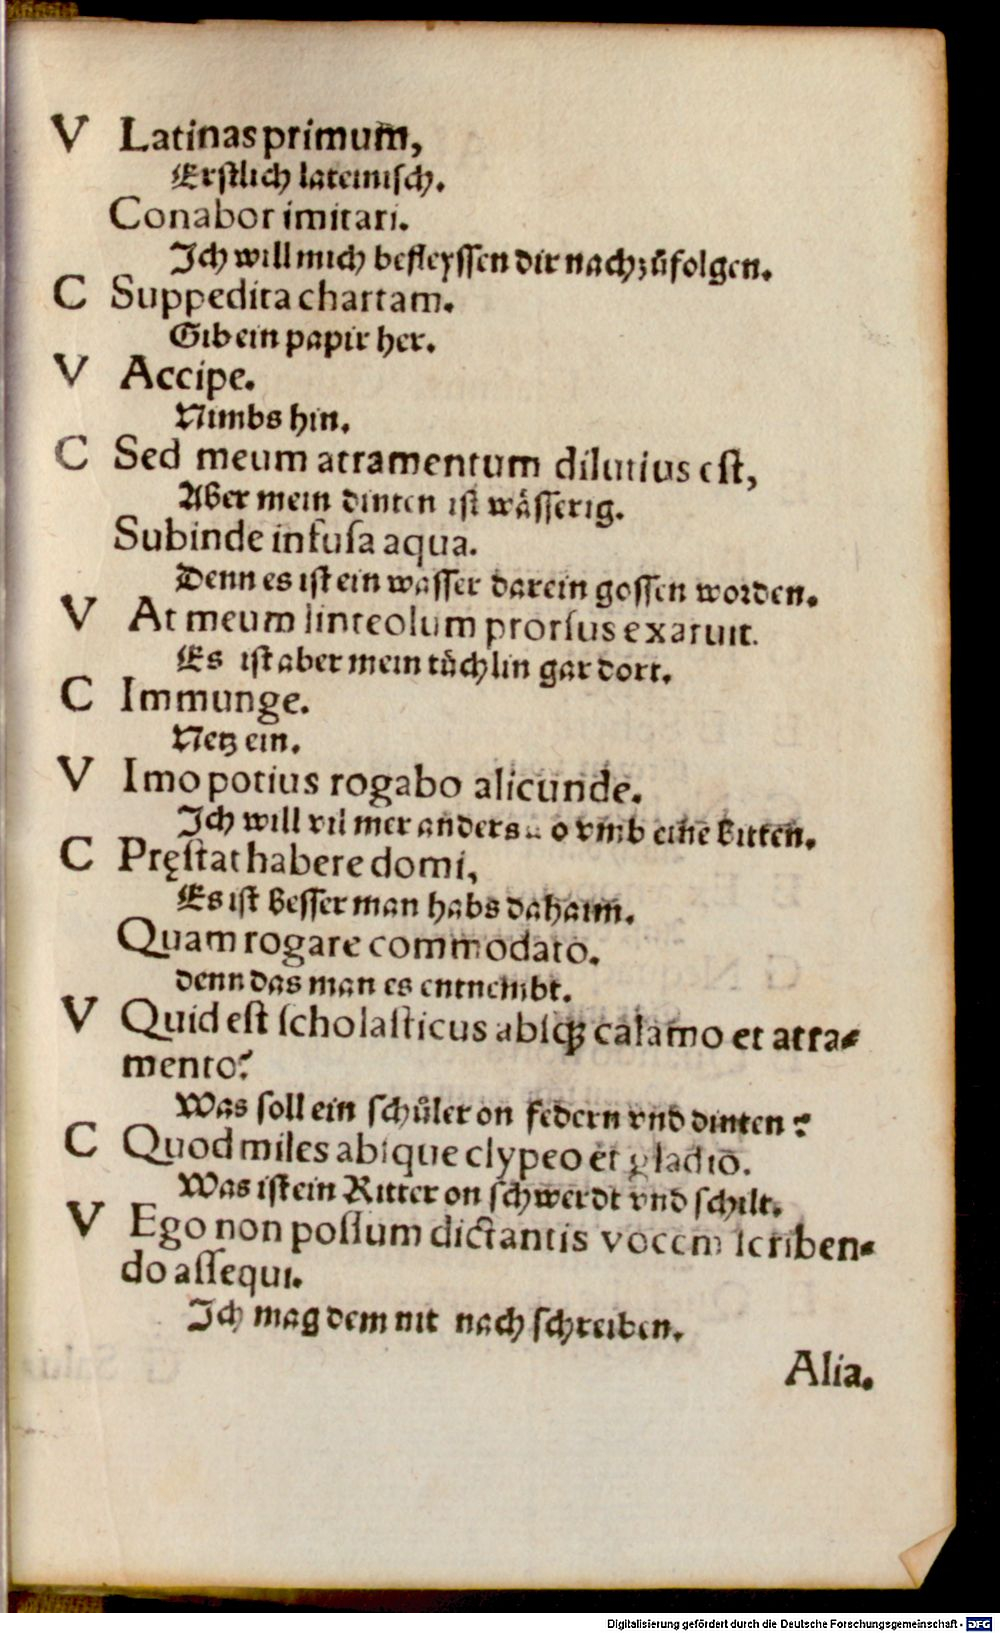 V Latinas primum,
Erſtlich lateiniſch.
Conabor imitari.
Ich will mich befleyſſen dir nachzůfolgen.
C Suppedita chartam.
Gib ein papir her.
V Accipe.
Nimbs hin.
C Sed meum atramentum dilutius eſt,
Aber mein dinten iſt wäſſerig.
Subinde infuſa aqua.
Denn es iſt ein waſſer darein goſſen worden.
V At meum linteolum prorſus exaruit.
Es iſt aber mein tüchlin gar dort.
C Immunge.
Netz ein.
V Imo potius rogabo alicunde.
Ich will vil mer anders o vmb eine bitten.
C Pręſtat habere domi,
Es iſt beſſer man habs dahaim.
Quam rogare commodato.
denn das man es entnembt.
V Quid eſt ſcholaſticus abſqꝫ calamo et atra⸗
mento?
Was ſoll ein ſchůler on federn vnd dinten?
C Quod miles abſque clypeo et gladio.
Was iſt ein Ritter on ſchwerdt vnd ſchilt.
V Ego non poſſum dictantis vocem ſcriben⸗
do aſſequi.
Ich mag dem nit nach ſchreiben.
Alia.
Digitalisierung gefördert durch die Deutsche Forschungsgemeinschaft - DFG